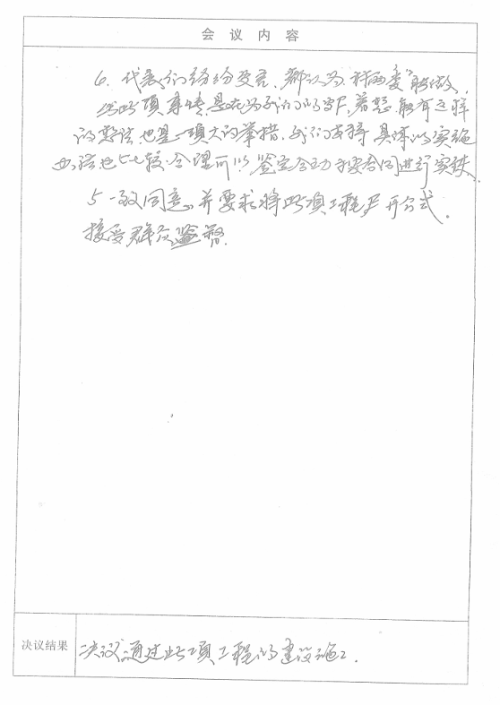 会议内容
6. 代表们纷纷发言，都认为 村两委能做
此项事情，是在为我们的 着想，能有这样
的想法也是一项大的举措，我们支持 具体的实施
办法也比较合理可以签定合 合同进行实使。
5 一致同意，并要求将此项工程 开公式。
接受群众监督.
决议结果
决议通过此项工程的建设施工.